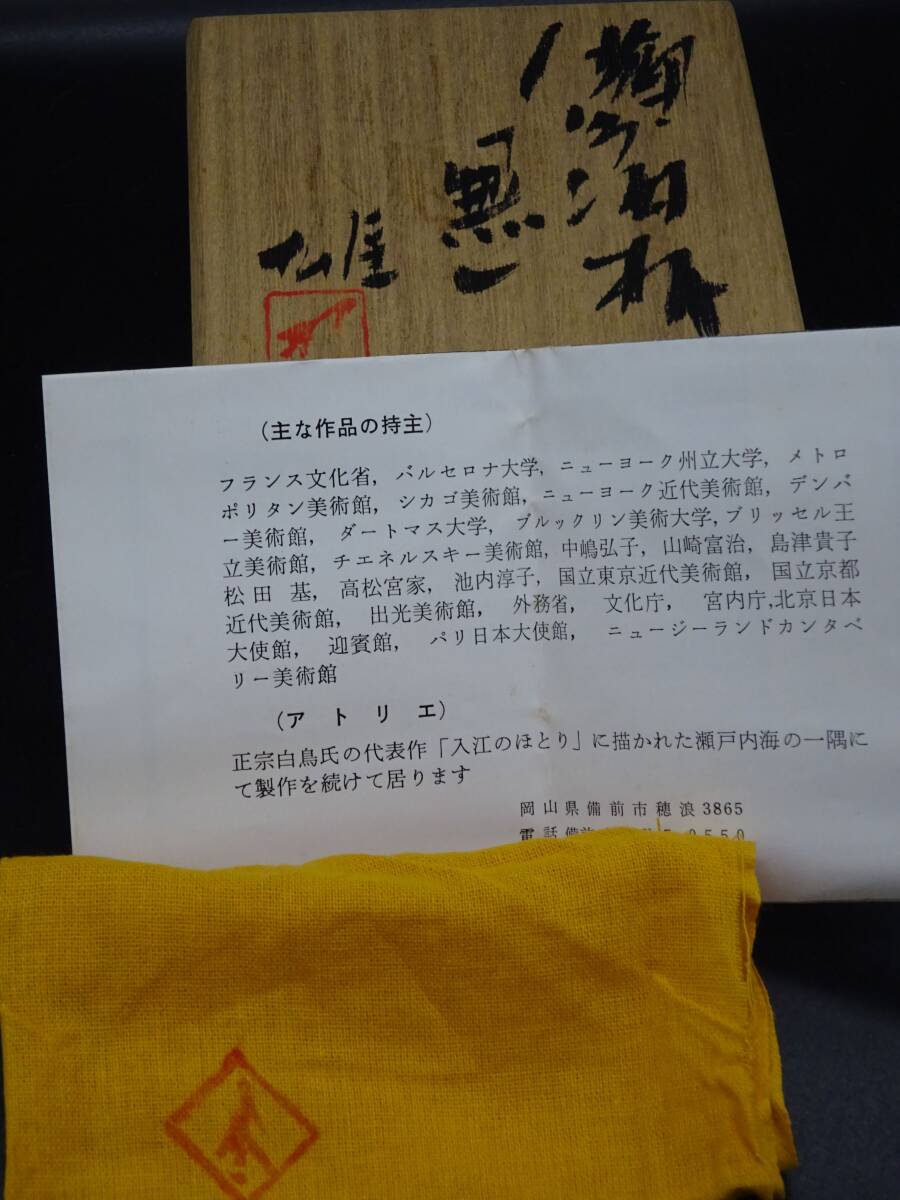 雄
(主な作品の持主)
フランス文化省, バルセロナ大学, ニューヨーク州立大学, メトロ
ポリタン美術館, シカゴ美術館, ニューヨーク近代美術館, デンバ
ー美術館, ダートマス大学, ブルックリン美術大学, ブリッセル王
立美術館, チエネルスキー美術館, 中嶋弘子, 山崎富治, 島津貴子
松田 基, 高松宮家, 池内淳子, 国立東京近代美術館, 国立京都
近代美術館, 出光美術館, 外務省, 文化庁, 宮内庁, 北京日本
大使館, 迎賓館, パリ日本大使館, ニュージーランドカンタベ
リー美術館
(アトリエ)
正宗白鳥氏の代表作「入江のほとり」に描かれた瀬戸内海の一隅に
て製作を続けて居ります
岡山県備前市穂浪3865
電話 備前 0550